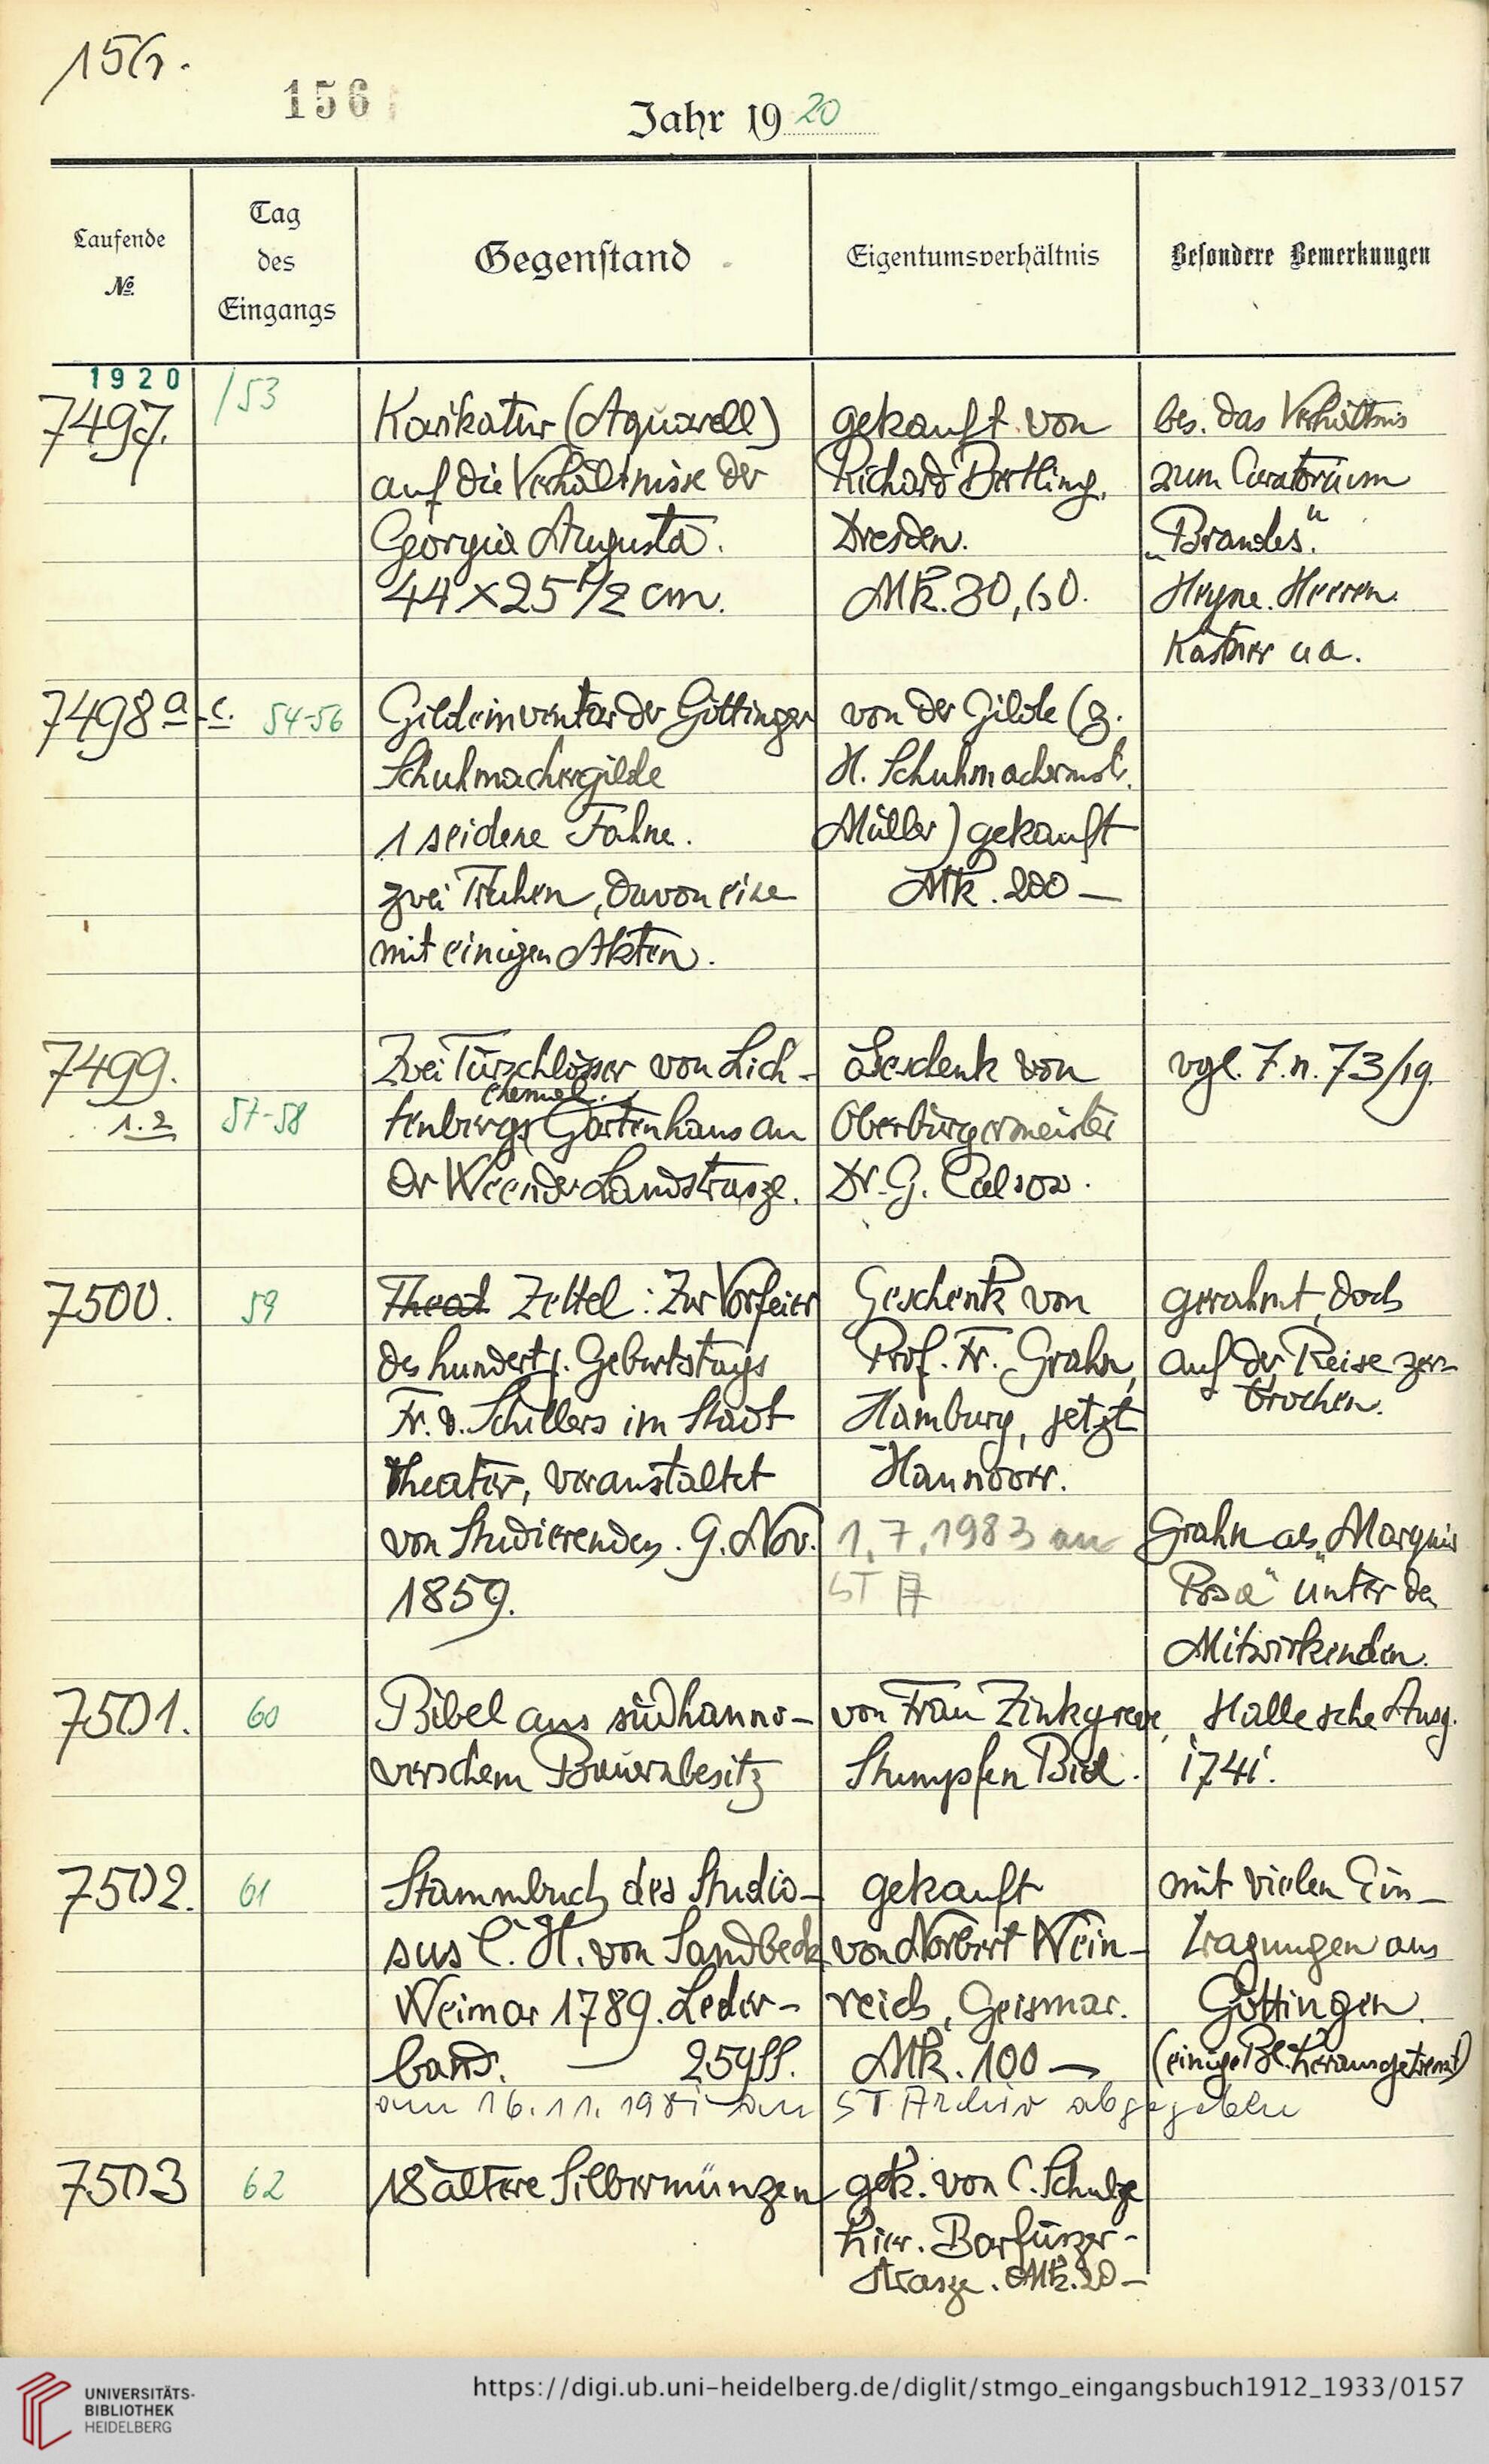 156.
156
Jahr 1920
Laufende
№
Tag
des
Eingangs
Gegenstand
Eigentumsverhältnis
Besondere Bemerkungen
1920
7497.
/53
Karikatur (Aquarell)
auf die Verhältnisse der
Georgia Augusta.
44 x 25 1/2 cm.
gekauft von
Richard Bertling,
Dresden.
Mk. 30,60.
bes. das Verhältnis
zum Curatorium
„Brandes“.
Heyne. Heeren.
Kästner u a.
7498 a-c.
54-56
Gildeinventar der Göttinger
Schuhmachergilde
1 seidene Fahne.
zwei Truhen, davon eine
mit einigen Akten.
von der Gilde (z.
H. Schuhmachermst.
Müller) gekauft
Mk. 200 —
7499.
1.2
57-58
Zwei Türschlösser von Lich-
ehemal.
tenbergs Gartenhaus an
der Weender Landstrasze.
Geschenk von
Oberbürgermeister
Dr. G. Calsow.
vgl. J. n. 73/19.
7500.
59
Theat Zettel: Zur Vorfeier
des hundertj. Geburtstags
Fr. v. Schillers im Stadt
theater, veranstaltet
von Studierenden. 9. Nov.
1859.
Geschenk von
Prof. Fr. Grahn,
Hamburg, jetzt
Hannover.
1.7.1983 an
ST A
gerahmt, doch
auf der Reise zer-
brochen.
Grahn als „Marquis
Posa“ unter den
Mitwirkenden.
7501.
60
Bibel aus südhanno-
verschem Bauernbesitz
von Frau Zinkgreve,
Stumpfen Biel.
Hallesche Ausg.
1741.
7502.
61
Stammbuch des Studio-
sus C. H. von Sandbeck
Weimar 1789. Leder-
band. — 259 SS.
gekauft
von Norbert Wein-
reich, Geismar.
Mk. 100 —
mit vielen Ein-
tragungen aus
Göttingen.
(einige Bl. herausgetrennt)
am 16.11.1981 an ST Archiv abgegeben
7503
62
18 ältere Silbermünzen
gek. von C. Schulze
hier. Barfüszer-
strasze. Mk. 20 —
UNIVERSITÄTS-
BIBLIOTHEK
HEIDELBERG
https://digi.ub.uni-heidelberg.de/diglit/stmgo_eingangsbuch1912_1933/0157